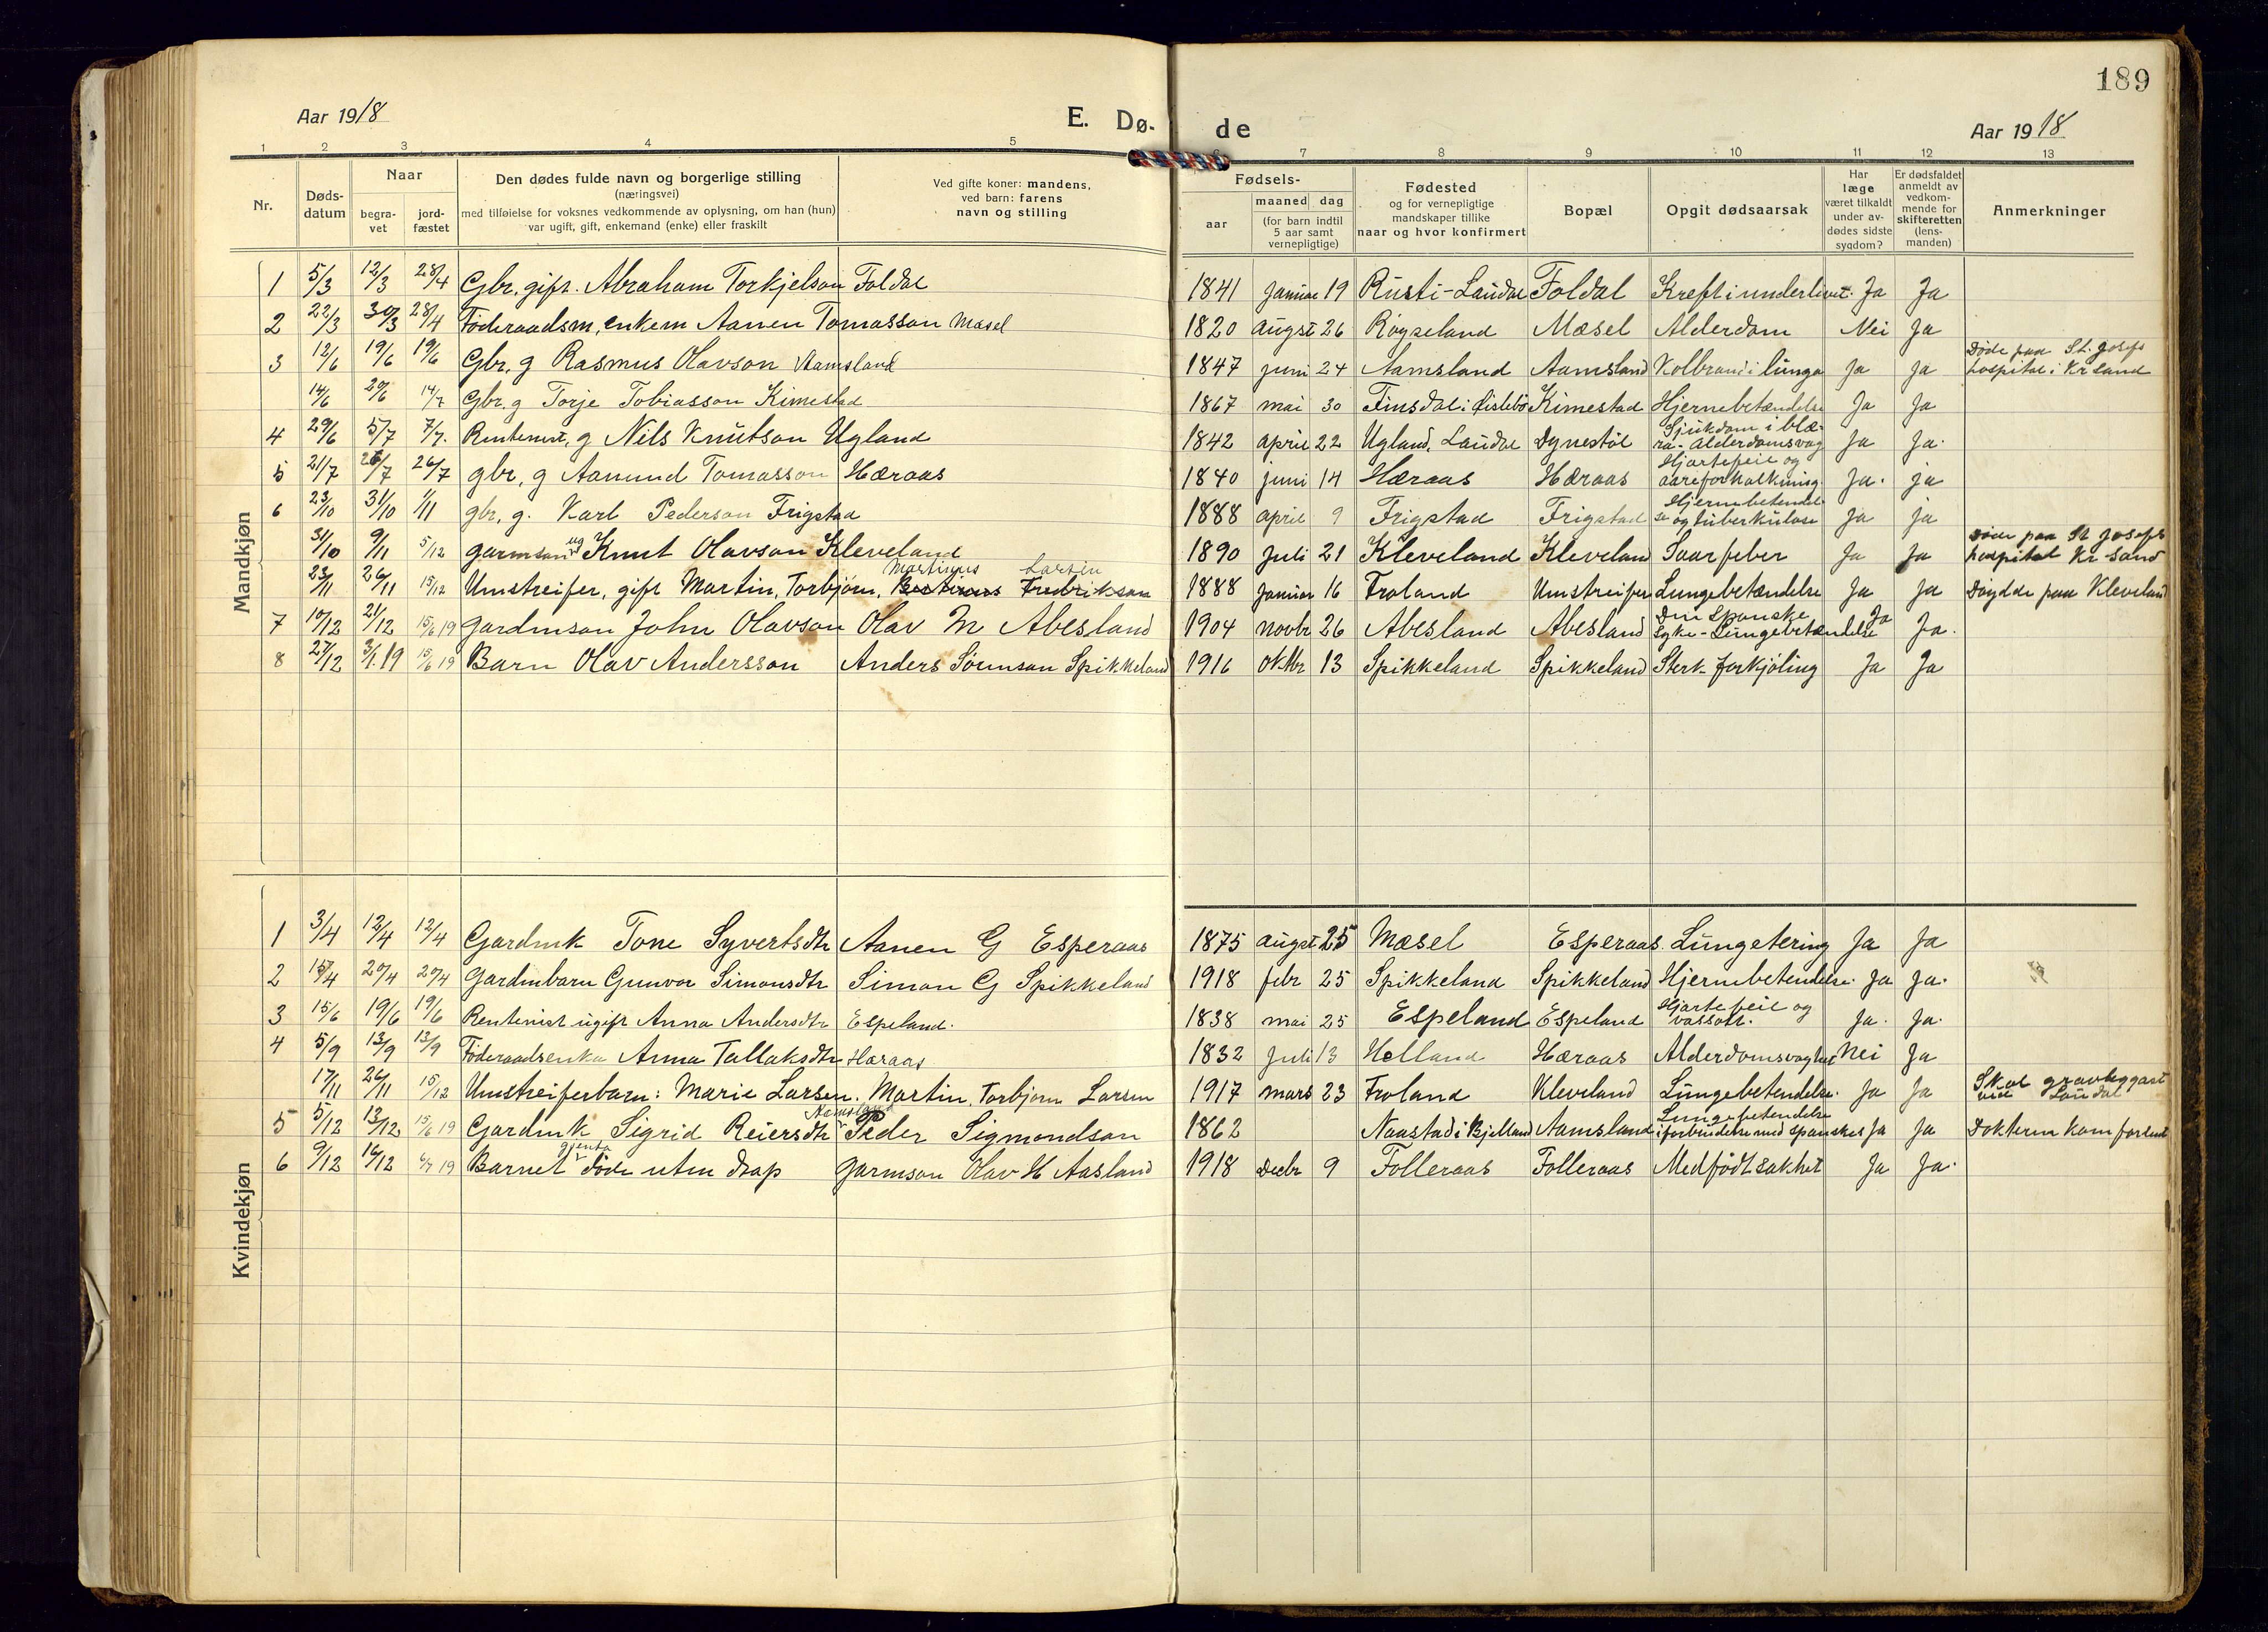 189
Aar 1918 E. Dø- de Aar 1918
1 2 3 4 5 6 7 8 9 10 11 12 13
Nr.
Døds-datum
Naar
begra-vet
jord-fæstet
Den dødes fulde navn og borgerlige stilling
(næringsvei)
med tilføielse for voksnes vedkommende av oplysning, om han (hun)
var ugift, gift, enkemand (enke) eller fraskilt
Ved gifte koner: mandens,
ved barn: farens
navn og stilling
Fødsels-
aar
maaned dag
(for barn indtil
5 aar samt
vernepligtige)
Fødested
og for vernepligtige
mandskaper tillike
naar og hvor konfirmert
Bopæl
Opgit dødsaarsak
Har
læge
været tilkaldt
under av-
dødes sidste
sygdom?
Er dødsfaldet
anmeldt av
vedkom-
mende for
skifteretten
(lens-
manden)
Anmerkninger
Mandkjøn
1 5/3 12/3 28/4 Gbr. gift. Abraham Torkjelson Foldal 1841 Januar 19 Rusti-Laudal Foldal Kreft i underlivet. Ja Ja
2 22/3 30/3 28/4 Føderaadsm, enkem Aanen Tomasson Mæsel 1820 augst 26 Røyseland Mæsel Alderdom Nei Ja
3 12/6 19/6 19/6 Gbr, g Rasmus Olavson Aamsland 1847 juni 24 Aamsland Aamsland Kolbrand i lunga Ja Ja Døde paa St. Josefs hospital i Kr sand
14/6 20/6 14/7 Gbr, g Torje Tobiasson Kimestad 1867 mai 30 Finsdal i Øislebø Kimestad Hjernebetændelse Ja Ja
4 29/6 5/7 7/7. Rentenist, g Nils Knutson Ugland 1842 april 22 Ugland, Laudal Dynestøl Sjukdom i blæ-ra - Alderdomsvag Ja Ja.
5 21/7 26/7 26/7 gbr, g Aanund Tomasson Hæraas 1840 juni 14 Hæraas Hæraas Hjartefeil og aareforkalkning Ja. ja
6 23/10 31/10 1/11 gbr, g. Karl Pederson Frigstad 1888 april 9 Frigstad Frigstad Hjernebetendel-se og tuberkulose Ja ja
31/10 9/11 5/12 garmson ug Knut Olavson Kleveland 1890 Juli 21 Kleveland Kleveland Saarfeber Ja Ja Døde paa St Josefs hospital Kr sand
23/11 26/11 15/12 Umstreifer, gift Martin, Torbjørn, Martinus Larsen Fredrikson 1888 Januar 16 Froland Umstreifer Lungebetændelse Ja Ja Døydde paa Kleveland
7 10/12 21/12 15/6 19 gardmson John Olavson Olav M Abesland 1904 novbr 26 Abesland Abesland Den Spanske syke - Lungebetændelse Ja Ja.
8 27/12 3/1.19 15/6 19 Barn Olav Andersson Anders Sørenson Spikkeland 1916 oktbr 13 Spikkeland Spikkeland Sterk forkjøling Ja Ja
Kvindekjøn
1 3/4 12/4 12/4 Gardmk Tone Syvertsdtr Aanen G Esperaas 1875 augst 25 Mæsel Esperaas Lungetering Ja Ja
2 15/4 20/4 20/4 Gardmbarn Gunvor Simonsdtr Simon G Spikkeland 1918 febr 25 Spikkeland Spikkeland Hjernebetendelse. Ja Ja.
3 15/6 19/6 19/6 Rentenist ugift Anna Andersdtr Espeland. 1838 mai 25 Espeland Espeland Hjartefeil og vassott. Ja. Ja.
4 5/9 13/9 13/9 Føderaadsenka Anna Tallaksdtr Hæraas 1832 Juli 13 Holland Hæraas Alderdomsvaghet Nei Ja
17/11 26/11 15/12 Umstreiferbarn: Marie Larsen. Martin, Torbjørn Larsen 1917 mars 23 Froland Kleveland Lungebetendelse. Ja Ja Skal gravleggast ved Laudal
5 5/12 13/12 15/6 19 Gardmk Sigrid Reiersdtr Aamsland Peder Sigmondson 1862 Naastad i Bjelland Aamsland Lungebetendelse i forbindelse med spanskes Ja Ja Dokteren kom forseint
6 9/12 16/12 6/7 19 Barnet gjenta døde uten daap garmson Olav H Aasland 1918 Decbr 9 Folleraas Folleraas Medfødt sakhet Ja Ja.